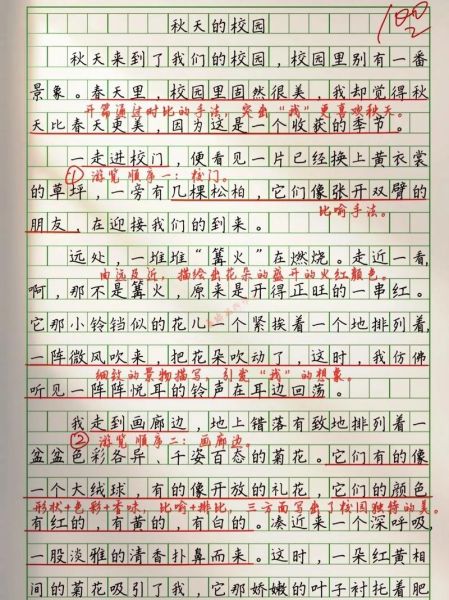 秋天的校园
100
秋天来到了我们的校园，校园里别有一番
景象。春天里，校园里固然很美，我却觉得秋
开篇通过对比的手法，突出“我”更喜欢秋天。
天比春天更美，因为这是一个收获的季节。
一走进校门，便看见一片已经换上黄衣裳
①游览顺序一：校门。
的草坪，一旁有几棵松柏，它们像张开双臂的
比喻手法。
朋友，在迎接我们的到来。
远处，一堆堆“篝火”在燃烧。走近一看，
由远及近，描绘出花朵的盛开的火红颜色。
啊，那不是篝火，原来是开得正旺的一串红。
它那小铃铛似的花儿一个紧挨着一个地排列着，
一阵微风吹来，把花朵吹动了，这时，我仿佛
细致的景物描写，引发“我”的想象。
听见一阵阵悦耳的铃声在耳边回荡。
我走到画廊边，地上错落有致地排列着一
②游览顺序二：画廊边。
盆盆色彩各异、千姿百态的菊花。它们有的像
一个大绒球，有的像开放的礼花，它们的颜色
形状+色彩+香味，比喻+排比，三方面写出了校园独特的美。
有红的，有黄的，有白的。凑近来一个深呼吸，
一股淡雅的清香扑鼻而来。这时，一朵红黄相
间的菊花吸引了我，它那娇嫩的叶子衬托着肥